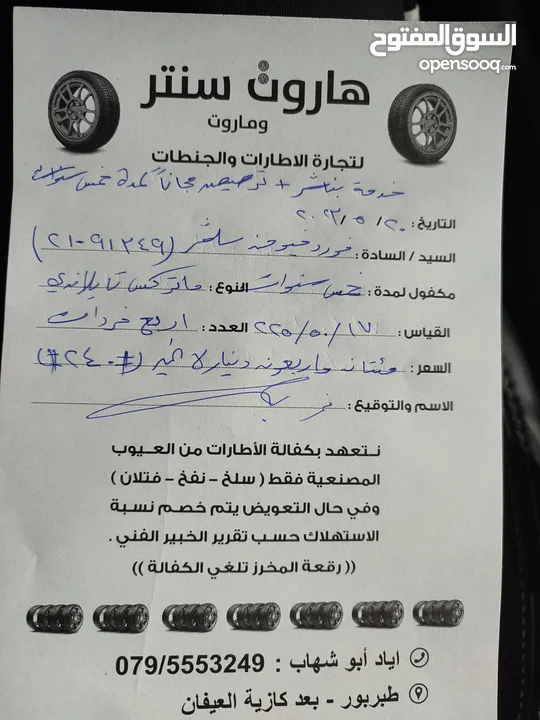 السوق المفتوح
opensooq.com
هاروت سنتر
وماروت
لتجارة الاطارات والجنطات
خدمة بنشر + ترصيص مجاناً لمدة خمس سنوات
التاريخ: ٢٠/٥/٢٠٢٣
السيد / السادة: فورد فيوجن سلفر (٩١٣٤٩-٢١)
مكفول لمدة: خمس سنوات النوع: ماتركس تايلاندي
القياس: ٢٢٥/٥٠/١٧ العدد: اربع فردات
السعر: مئتان واربعون دينار لا غير (#٢٤٠#)
الاسم والتوقيع:
نتعهد بكفالة الأطارات من العيوب
المصنعية فقط ( سلخ - نفخ - فتلان )
وفي حال التعويض يتم خصم نسبة
الاستهلاك حسب تقرير الخبير الفني .
(( رقعة المخرز تلغي الكفالة ))
اياد أبو شهاب : 079/5553249
طبربور - بعد كازية العيفان